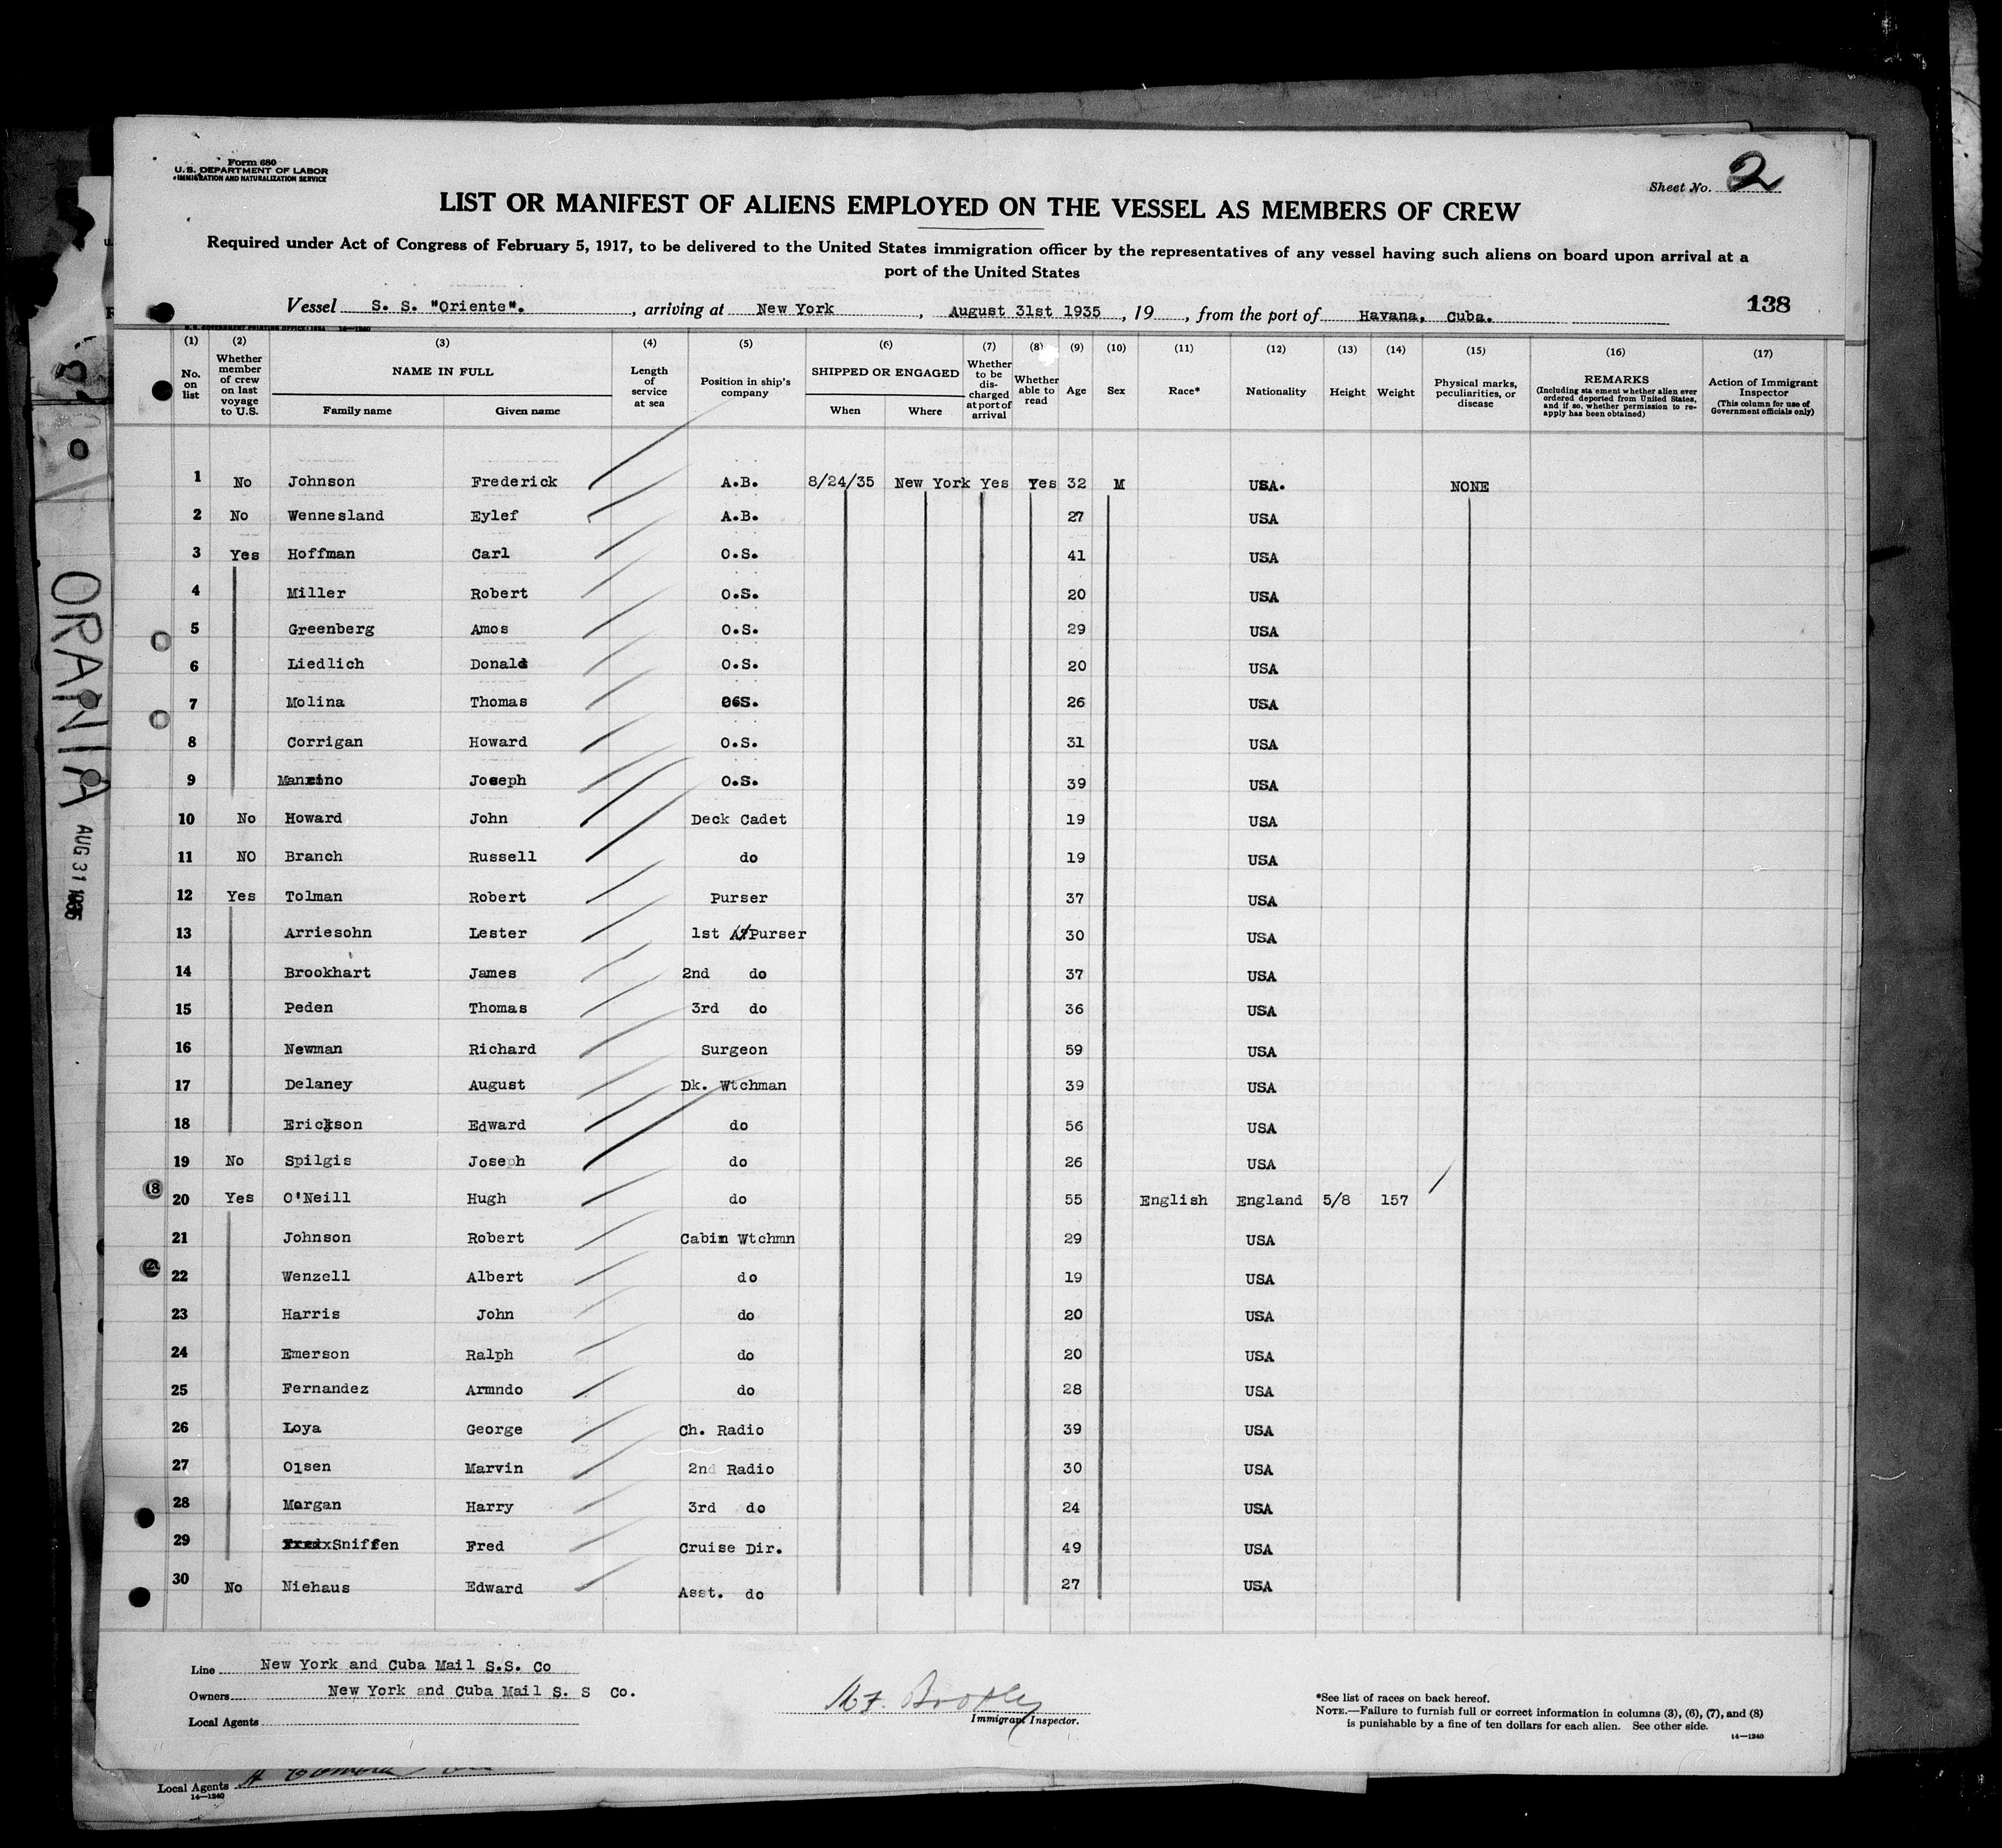 Form 680
U. S. DEPARTMENT OF LABOR
IMMIGRATION AND NATURALIZATION SERVICE
Sheet No. 2
LIST OR MANIFEST OF ALIENS EMPLOYED ON THE VESSEL AS MEMBERS OF CREW
Required under Act of Congress of February 5, 1917, to be delivered to the United States immigration officer by the representatives of any vessel having such aliens on board upon arrival at a
port of the United States
138
Vessel S. S. "Oriente". , arriving at New York , August 31st 1935 , 19 , from the port of Havana, Cuba.
U. S. GOVERNMENT PRINTING OFFICE: 1934 14—1240
(1) (2) (3) (4) (5) (6) (7) (8) (9) (10) (11) (12) (13) (14) (15) (16) (17)
No. on list Whether member of crew on last voyage to U.S. NAME IN FULL Family name Given name Length of service at sea Position in ship's company SHIPPED OR ENGAGED When Where Whether to be discharged at port of arrival Whether able to read Age Sex Race* Nationality Height Weight Physical marks, peculiarities, or disease REMARKS (Including statement whether alien ever ordered deported from United States, and if so, whether permission to reapply has been obtained) Action of Immigrant Inspector (This column for use of Government officials only)
1 No Johnson Frederick A.B. 8/24/35 New York Yes Yes 32 M USA. NONE
2 No Wennesland Eylef A.B. 27 USA
3 Yes Hoffman Carl O.S. 41 USA
4 Miller Robert O.S. 20 USA
5 Greenberg Amos O.S. 29 USA
6 Liedlich Donald O.S. 20 USA
7 Molina Thomas O6S. 26 USA
8 Corrigan Howard O.S. 31 USA
9 Joseph O.S. 39 USA
10 No Howard John Deck Cadet 19 USA
11 NO Branch Russell do 19 USA
12 Yes Tolman Robert Purser 37 USA
13 Arriesohn Lester 1st Purser 30 USA
14 Brookhart James 2nd do 37 USA
15 Peden Thomas 3rd do 36 USA
16 Newman Richard Surgeon 59 USA
17 Delaney August Dk. Wtchman 39 USA
18 Erickson Edward do 56 USA
19 No Spilgis Joseph do 26 USA
20 Yes O'Neill Hugh do 55 English England 5/8 157
21 Johnson Robert Cabin Wtchmn 29 USA
22 Wenzell Albert do 19 USA
23 Harris John do 20 USA
24 Emerson Ralph do 20 USA
25 Fernandez Armndo do 28 USA
26 Loya George Ch. Radio 39 USA
27 Olsen Marvin 2nd Radio 30 USA
28 Morgan Harry 3rd do 24 USA
29 Sniffen Fred Cruise Dir. 49 USA
30 No Niehaus Edward Asst. do 27 USA
Line New York and Cuba Mail S.S. Co
Owners New York and Cuba Mail S. S Co.
Local Agents
Immigrant Inspector.
*See list of races on back hereof.
NOTE.—Failure to furnish full or correct information in columns (3), (6), (7), and (8)
is punishable by a fine of ten dollars for each alien. See other side.
14—1240
Local Agents
14—1240
ORANIA
AUG 31 1935